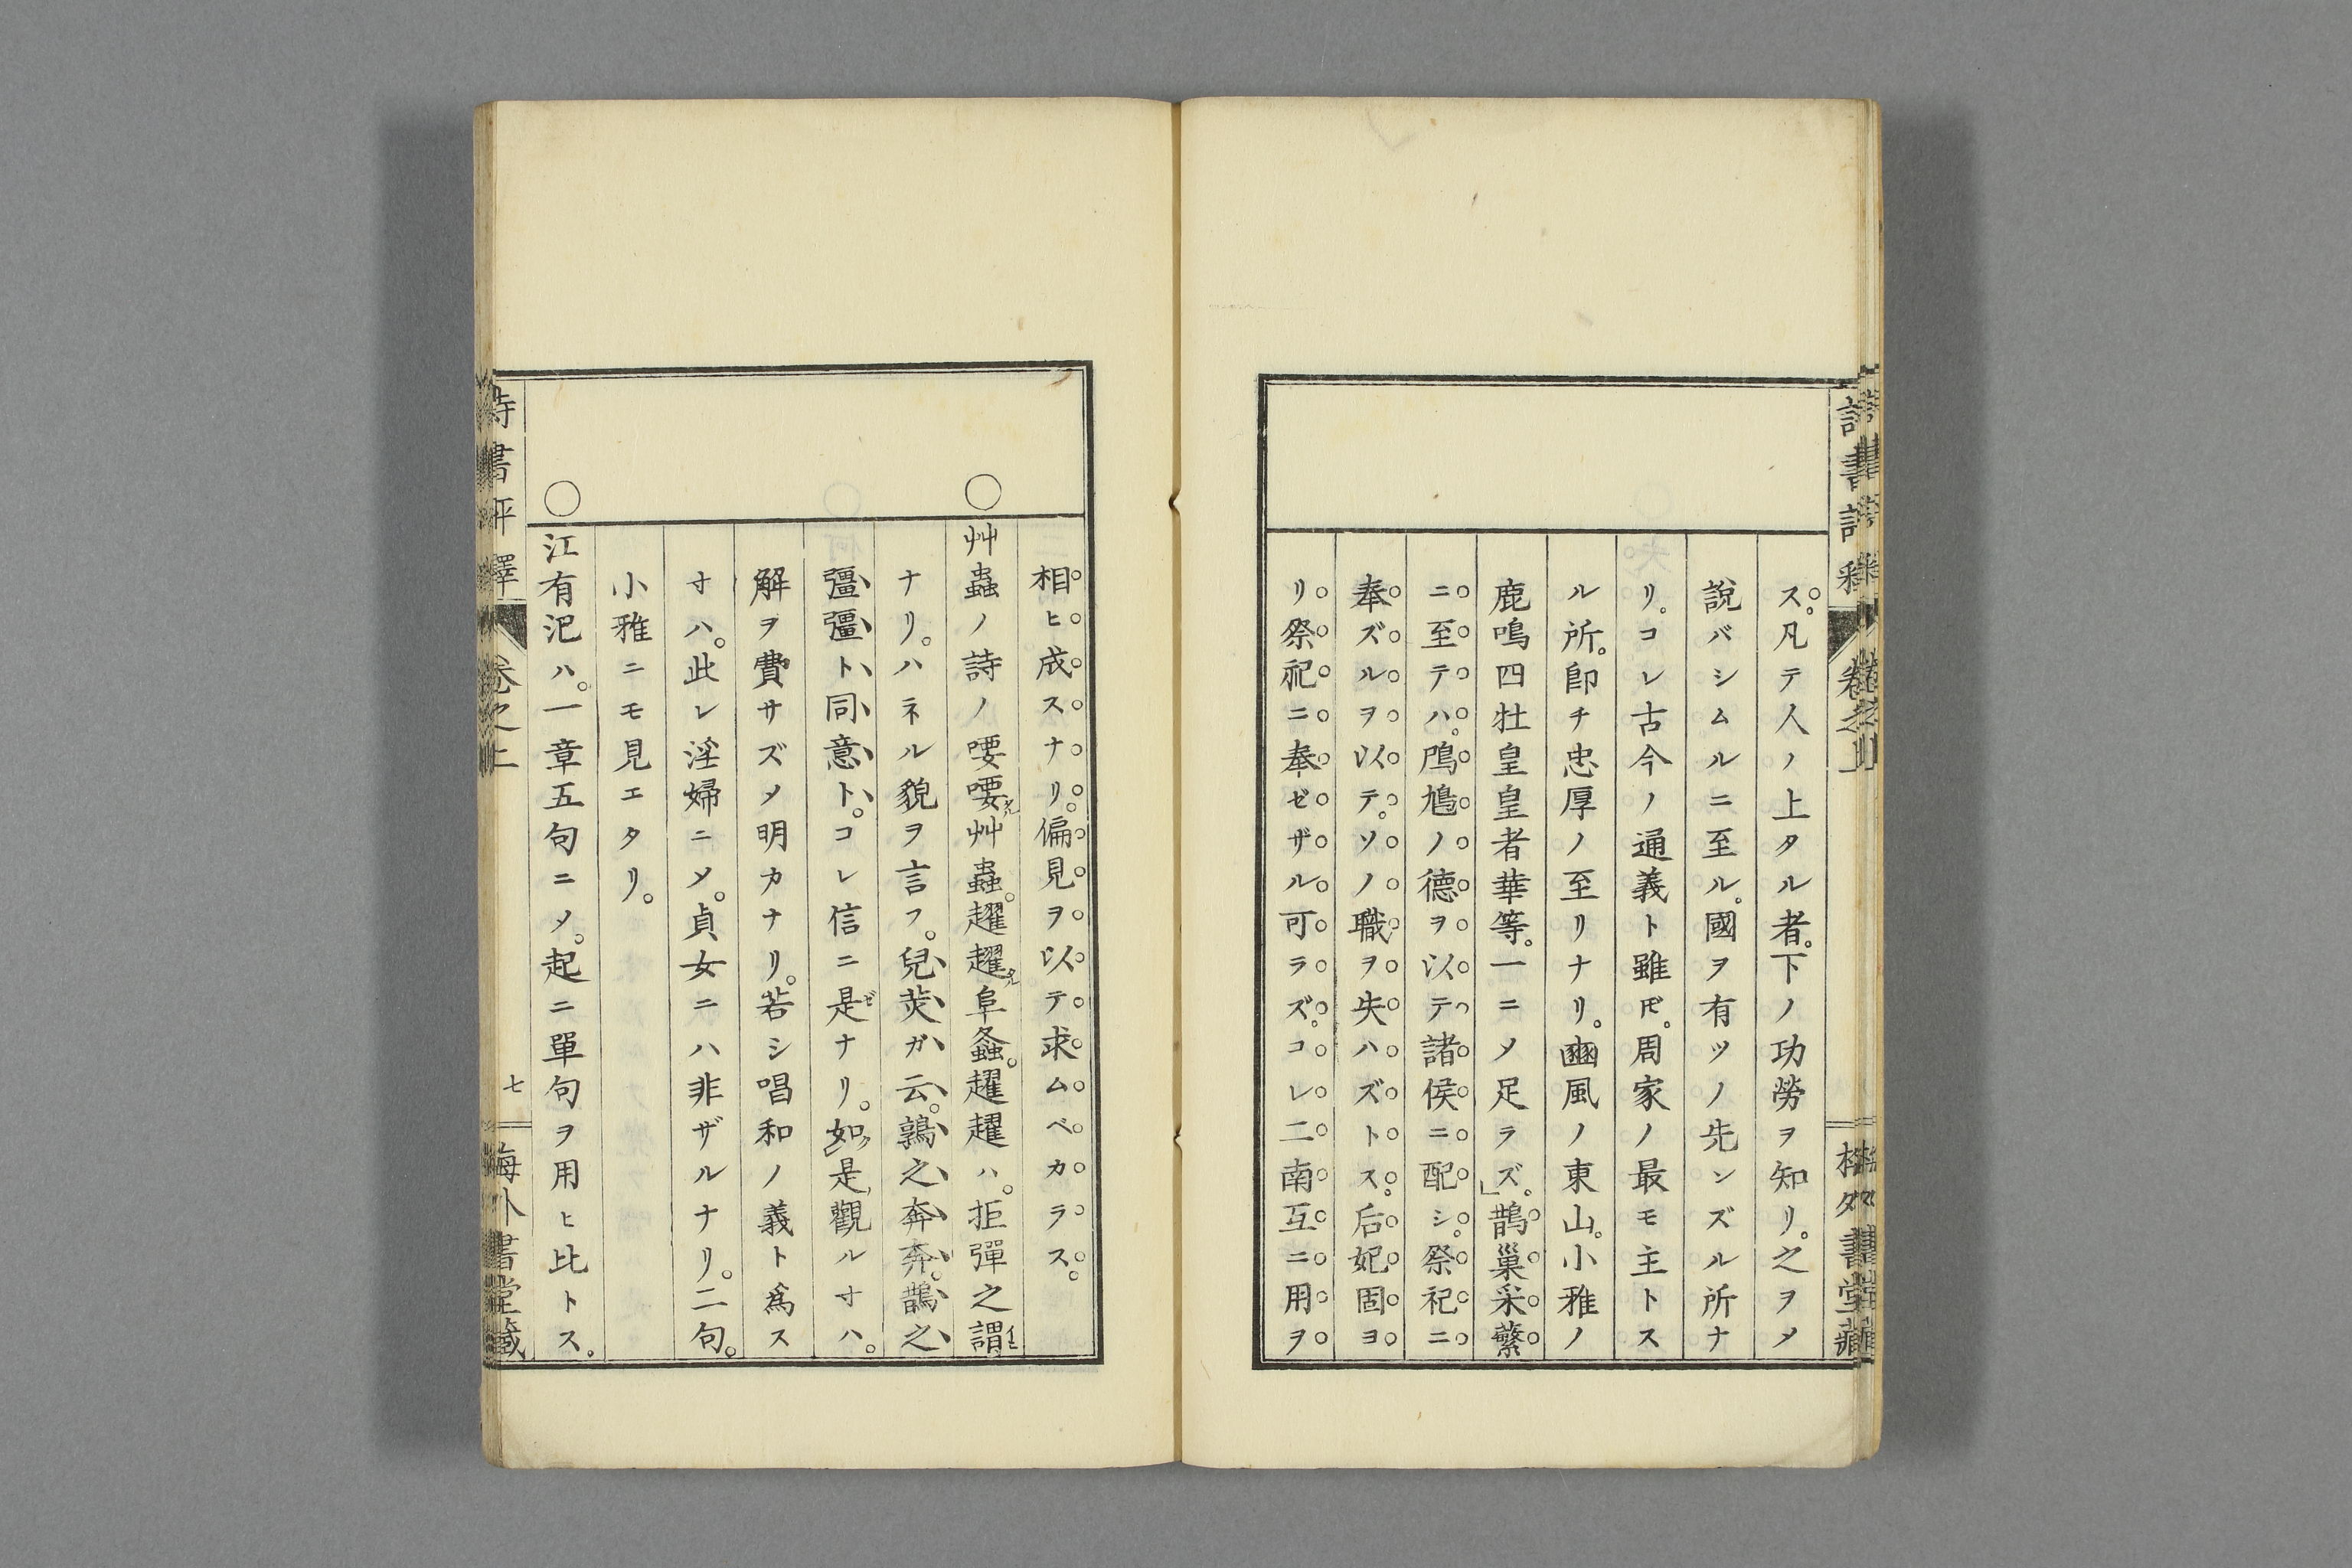 ス。凡テ人ノ上タル者。下ノ功勞ヲ知リ。之ヲメ
說バシムルニ至ル。國ヲ有ツノ先ンズル所ナ
リ。コレ古今ノ通義ト雖𪜈。周家ノ最モ主トス
ル所。卽チ忠厚ノ至リナリ。豳風ノ東山。小雅ノ
鹿鳴四牡皇皇者華等。一ニメ足ラズ。」鵲巢采蘩
ニ至テハ。鳲鳩ノ德ヲ以テ諸侯ニ配シ。祭祀ニ
奉ズルヲ以テ。ソノ職ヲ失ハズトス。后妃固ヨ
リ祭祀ニ奉ゼザル可ラズ。コレ二南互ニ用ヲ
相ヒ成スナリ。偏見ヲ以テ求ムベカラス。
○艸蟲ノ詩ノ喓喓タル艸蟲。趯趯タル阜螽。趯趯ハ。拒彈之謂イヒ
ナリ。ハネル貌ヲ言フ。兒莢ガ云。鶉之奔奔。鵲之
彊彊ト同意ト。コレ信ニ是ゼナリ。如ク是ノ觀ルヿハ。
解ヲ費サズメ明カナリ。若シ唱和ノ義ト爲ス
ヿハ。此レ淫婦ニメ。貞女ニハ非ザルナリ。二句。
小雅ニモ見エタリ。
○江有汜ハ。一章五句ニメ。起ニ單句ヲ用ヒ比トス。
詩書評釋 卷之上 七 梅外書堂藏